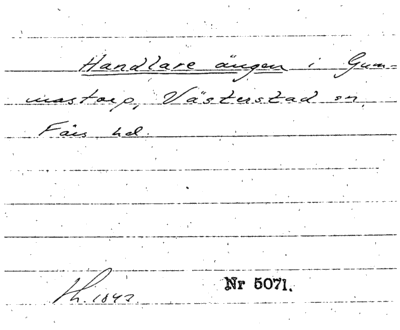 Handlare ängen i Gum-
mastorp, Västerstad sn
Färs hd.
Th. 1842
Nr 5071.